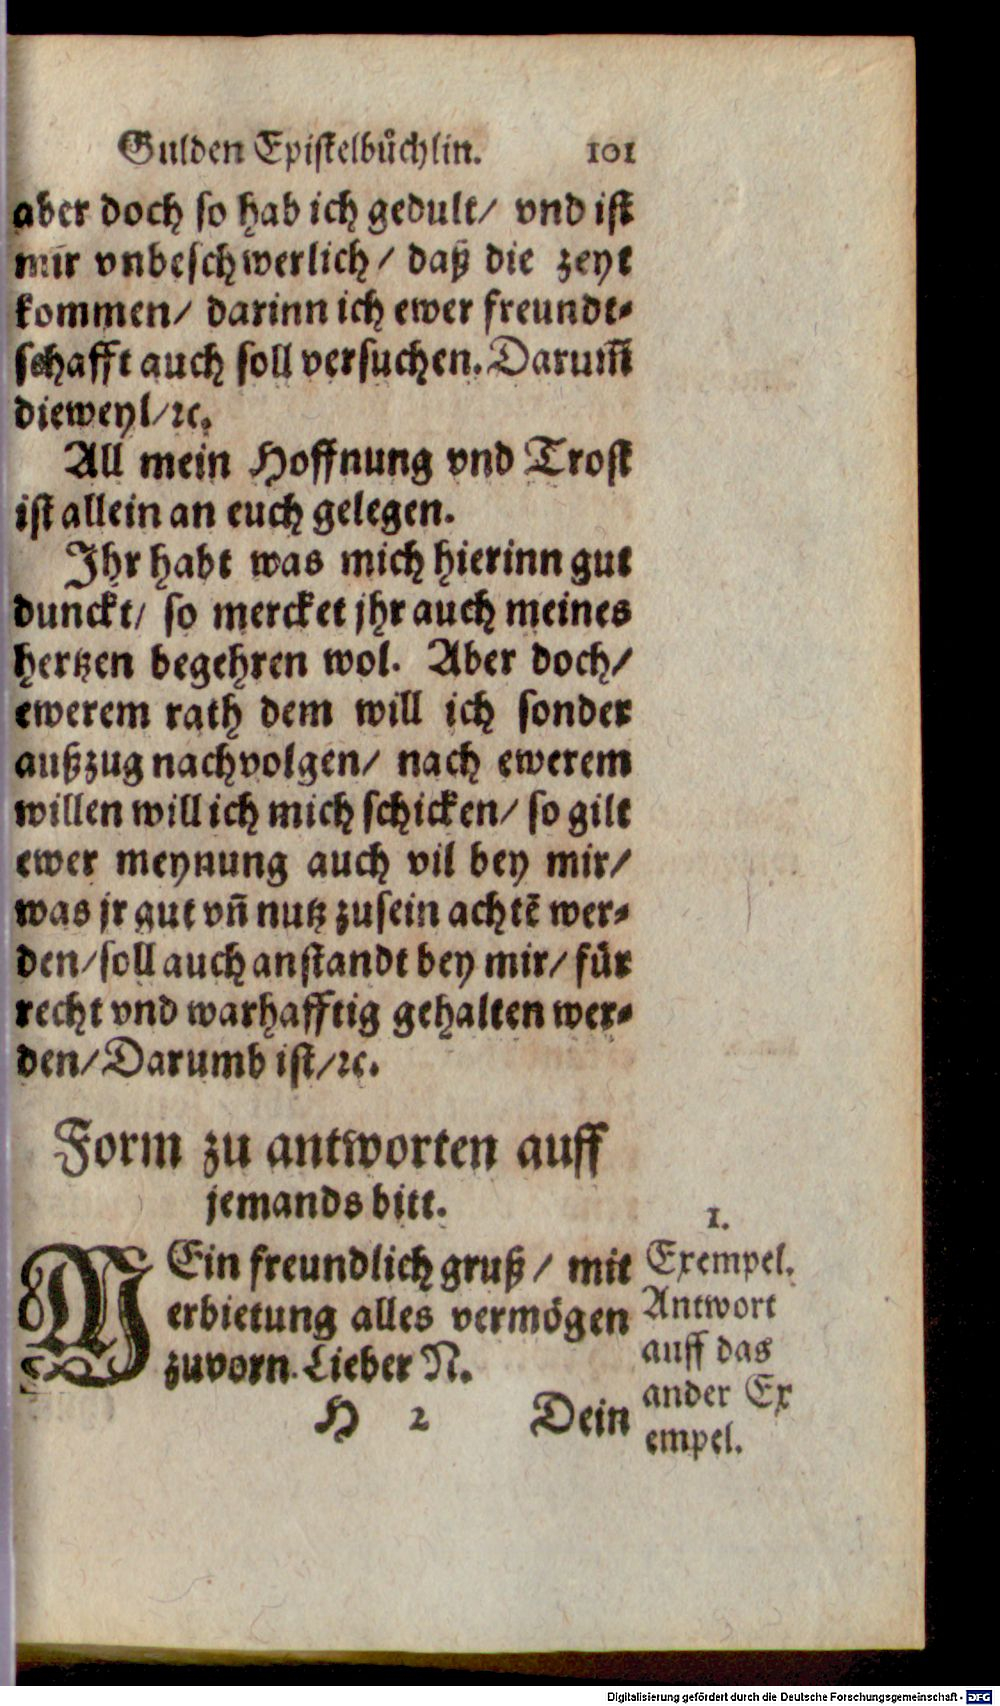 Gulden Epistelbůchlin. 101
aber doch so hab ich gedult/ vnd ist
mir vnbeschwerlich/ daß die zeyt
kommen/ darinn ich ewer freundt-
schafft auch soll versuchen. Darum̃
dieweyl/ꝛc.
All mein Hoffnung vnd Trost
ist allein an euch gelegen.
Ihr habt was mich hierinn gut
dunckt/ so mercket jhr auch meines
hertzen begehren wol. Aber doch/
ewerem rath dem will ich sonder
außzug nachvolgen/ nach ewerem
willen will ich mich schicken/ so gilt
ewer meynung auch vil bey mir/
was jr gut vñ nutz zusein achtẽ wer-
den/soll auch anstandt bey mir/ für
recht vnd warhafftig gehalten wer-
den/Darumb ist/ꝛc.
Form zu antworten auff
jemands bitt.
MEin freundlich gruß/ mit
erbietung alles vermögen
zuvorn. Lieber N.
H 2 Dein
1.
Exempel.
Antwort
auff das
ander Ex
empel.
Digitalisierung gefördert durch die Deutsche Forschungsgemeinschaft - DFG